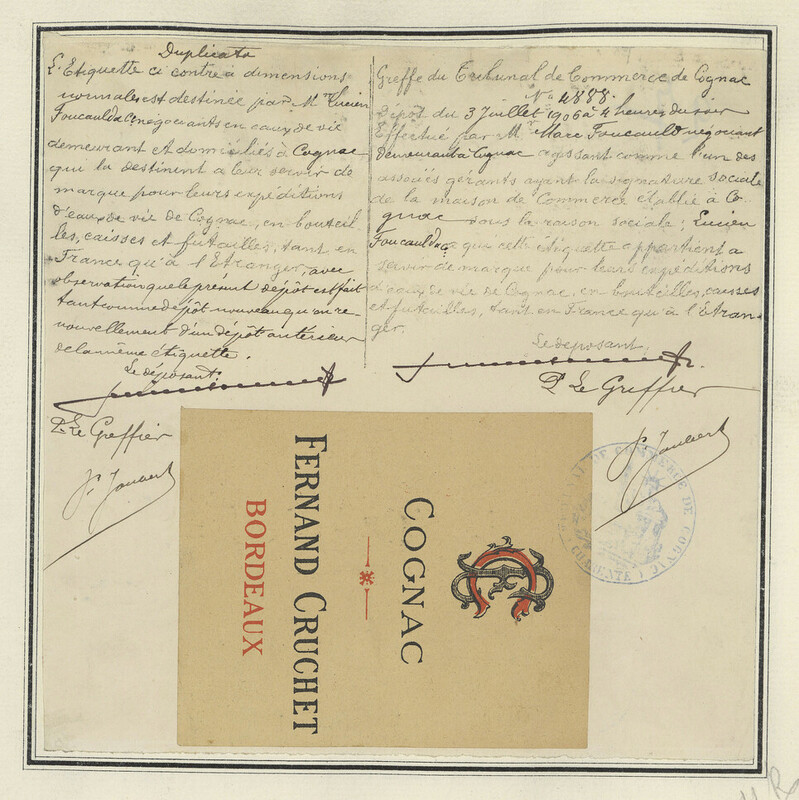 Duplicata
L'Etiquette ci contre à dimensions
normales est destinée par Mrs Lucien
Foucauld & Cie négociants en eaux de vie
demeurant et domiciliés à Cognac
qui la destinent à leur servir de
marque pour leurs expéditions
d'eaux de vie de Cognac, en bouteil
les, caisses et futailles, tant en
France qu'à l'Etranger, avec
observation que le présent dépôt est fait
tant comme dépôt nouveau qu'en re-
nouvellement d'un dépôt antérieur
de la même étiquette.
Le déposant.
Pr Le Greffier
P. Joubert
Greffe du Tribunal de Commerce de Cognac
No 4888.
Dépôt du 3 Juillet 1906 à 4 heures du soir
Effectué par Mr Marc Foucauld négociant
demeurant à Cognac agissant comme l'un des
associés gérants ayant la signature sociale
de la maison de Commerce établie à Co
gnac sous la raison sociale; Lucien
Foucauld & Cie qui cette étiquette appartient a
servir de marque pour leurs expéditions
d'eaux de vie de Cognac, en bouteilles, caisses
et futailles, tant en France qu'à l'Etran-
ger.
Le déposant.
Pr Le Greffier
P. Joubert
COGNAC
FERNAND CRUCHET
BORDEAUX
DE COMMERCE DE COGNAC
(CHARENTE)